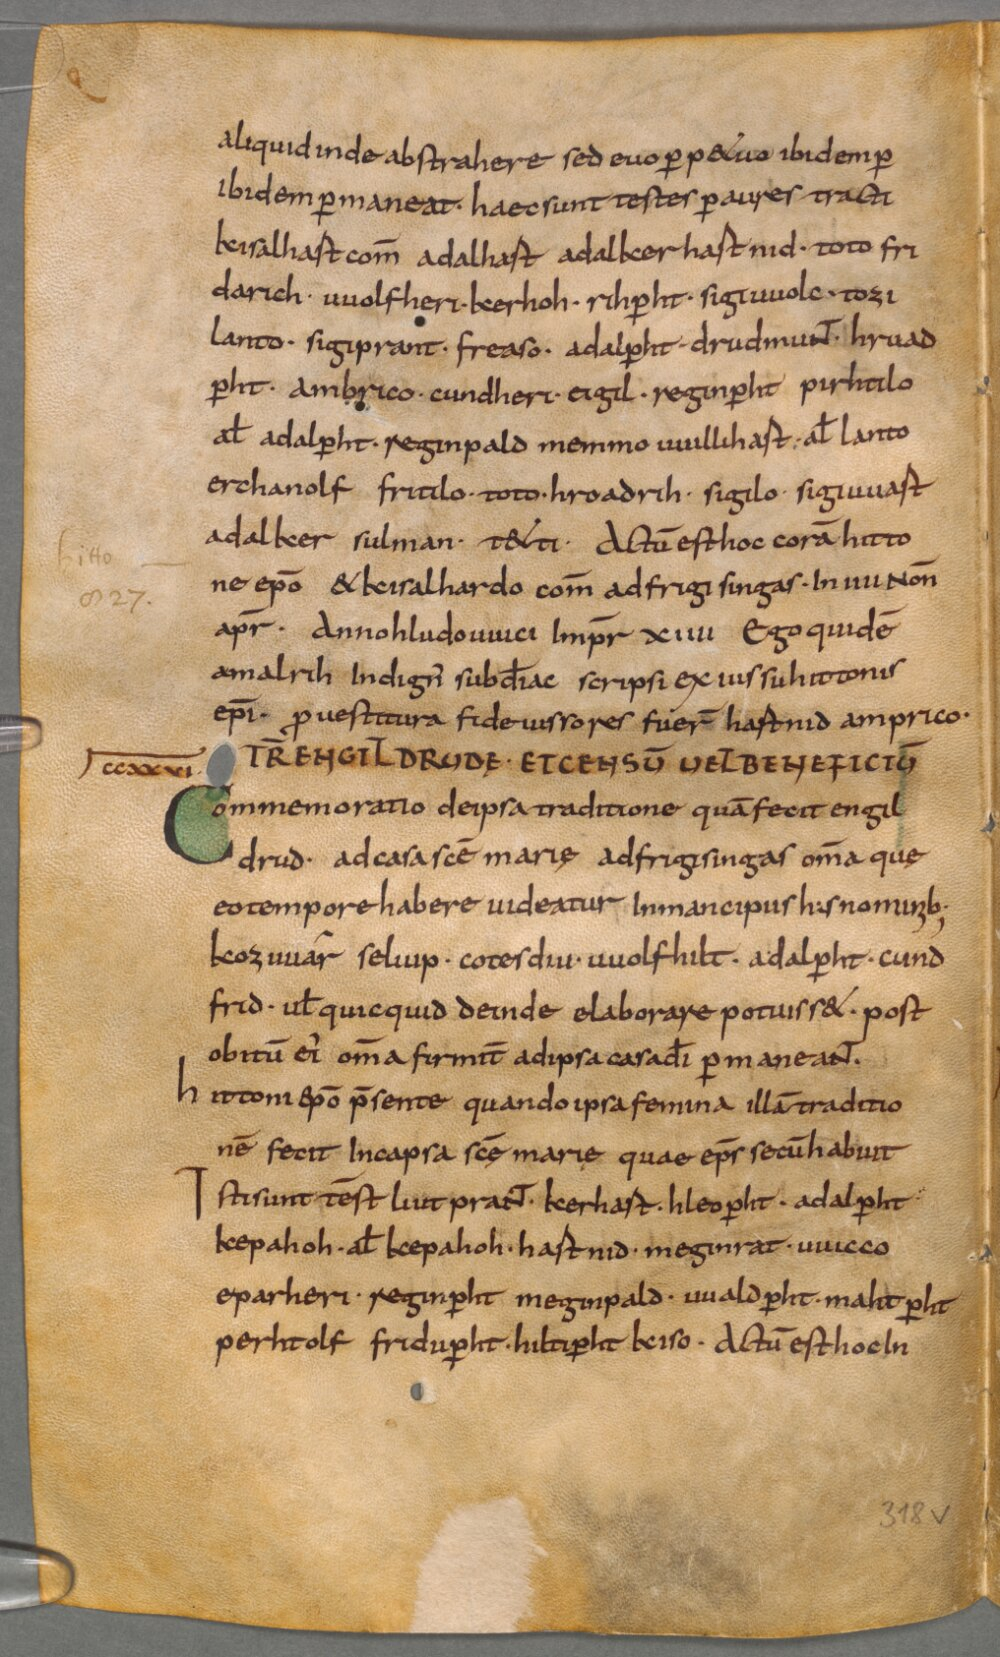 aliquid inde abstrahere sed euo ꝑp&uo ibidem ꝑ
ibidem ꝑmaneat· haec sunt testes ꝑ aures tracti
keisalhast com̄ adalhast adalker hastnid· toto fri
darich· uuolfheri· kerhoh· rihꝑht· sigiuuolc· tozi
lanto· sigiprant· freaso· adalꝑht· drudmunt· hruad
ꝑht· ambrico· cundheri· eigil· reginꝑht pirhtilo
al̄ adalꝑht· reginpald memmo uuillihast· al̄ lanto
erchanolf fritilo· toto· hroadrih· sigilo· sigiuuast
adalker sulman· t&ti· Actū est hoc corā hitto
hitto
827.
ne ep̄o & keisalhardo com̄ ad frigisingas· In uii Non̄
apr̄· Anno hludouuici Imp̄r xiiii Ego quidē
amalrih Indign̄ subdiac̄ scripsi ex iussu hittonis
ep̄i· ꝓ uestitura fideiussores fuer̄ hastnid amprico·
ccxxxvi· TR̄ ENGILDRUDE· ET CENSŪ UEL BENEFICIŪ
Commemoratio de ipsa traditione quā fecit engil
drud· ad casa scē marię ad frigisingas om̄a quę
eo tempore habere uideatur In mancipiis his nominib;
kozuuar̄ seluuip· cotesdiu· uuolfhilt· adalꝑht· cund
frid· ul̄ quicquid deinde elaborare potuiss&· post
obitū ei' om̄a firmit̄ ad ipsa casa dī ꝑmaneant·
hittoni ep̄o p̄sente quando ipsa femina illā traditio
nē fecit In capsa scę̄ marię quae ep̄s secū habuit
Isti sunt tēst liutprant· kerhast· hleoꝑht· adalꝑht
kepahoh· al̄ kepahoh· hastnid· meginrat· uuicco
eparheri· reginꝑht meginpald· uualdꝑht· mahtꝑht
perhtolf friduꝑht· hiltiꝑht keiso· Actū est hoc In
318v